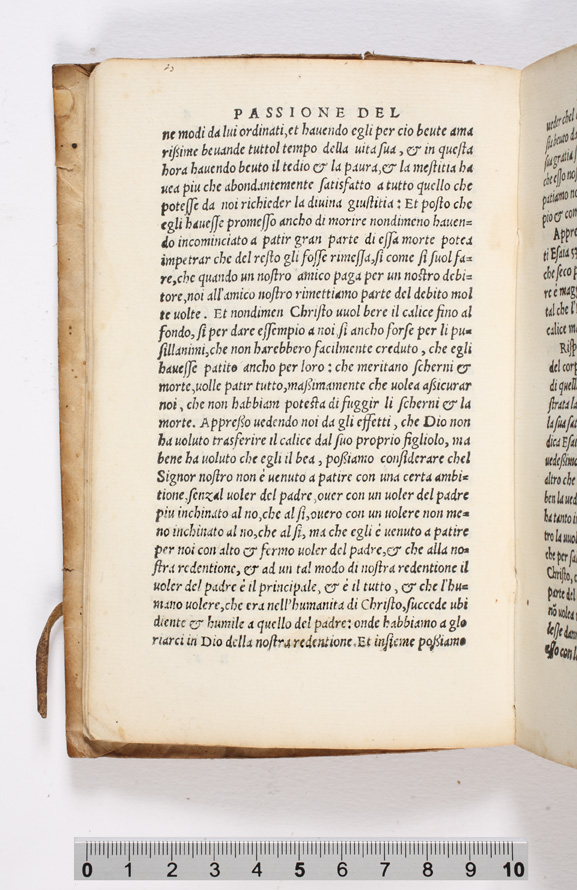 PASSIONE DEL
ne modi da lui ordinati, et hauendo egli per cio beute ama
rißime beuande tuttol tempo della uita sua, & in questa
hora hauendo beuto il tedio & la paura, & la mestitia ha
uea piu che abondantemente satisfatto a tutto quello che
potesse da noi richieder la diuina giustitia: Et posto che
egli hauesse promesso ancho di morire nondimeno hauen=
do incominciato a patir gran parte di essa morte potea
impetrar che del resto gli fosse rimessa, si come si suol fa=
re, che quando un nostro amico paga per un nostro debi=
tore, noi all'amico nostro rimettiamo parte del debito mol
te uolte. Et nondimen Christo uuol bere il calice fino al
fondo, si per dare essempio a noi si ancho forse per li pu=
sillanimi, che non harebbero facilmente creduto, che egli
hauesse patito ancho per loro: che meritano scherni &
morte, uolle patir tutto, maßimamente che uolea aßicurar
noi, che non habbiam potesta di fuggir li scherni & la
morte. Appreßo uedendo noi da gli effetti, che Dio non
ha uoluto trasferire il calice dal suo proprio figliolo, ma
bene ha uoluto che egli il bea, poßiamo considerare chel
Signor nostro non è uenuto a patire con una certa ambi=
tione, senzal uoler del padre, ouer con un uoler del padre
piu inchinato al no, che al si, ouero con un uolere non me=
no inchinato al no, che al si, ma che egli è uenuto a patire
per noi con alto & fermo uoler del padre, & che alla no=
stra redentione, & ad un tal modo di nostra redentione il
uoler del padre è il principale, & è il tutto, & che l'hu=
mano uolere, che era nell'humanita di Christo, succede ubi
diente & humile a quello del padre: onde habbiamo a glo
riarci in Dio della nostra redentione. Et insieme poßiamo
ueder chel
sua gratia
che esso no
patiamo no
pio & con
Appre
ti Esaia 53
che seco p
re è mag
tal che l'
calice m
Risp
del corp
di quell
strata la
la sua sat
dica Esai
uedeßimo
altro che
ben la ued
ha tanto in
tro la uuol
che per sa
Christo, e
parte del
nõ uolea
desse dam
esso con la
0 1 2 3 4 5 6 7 8 9 10